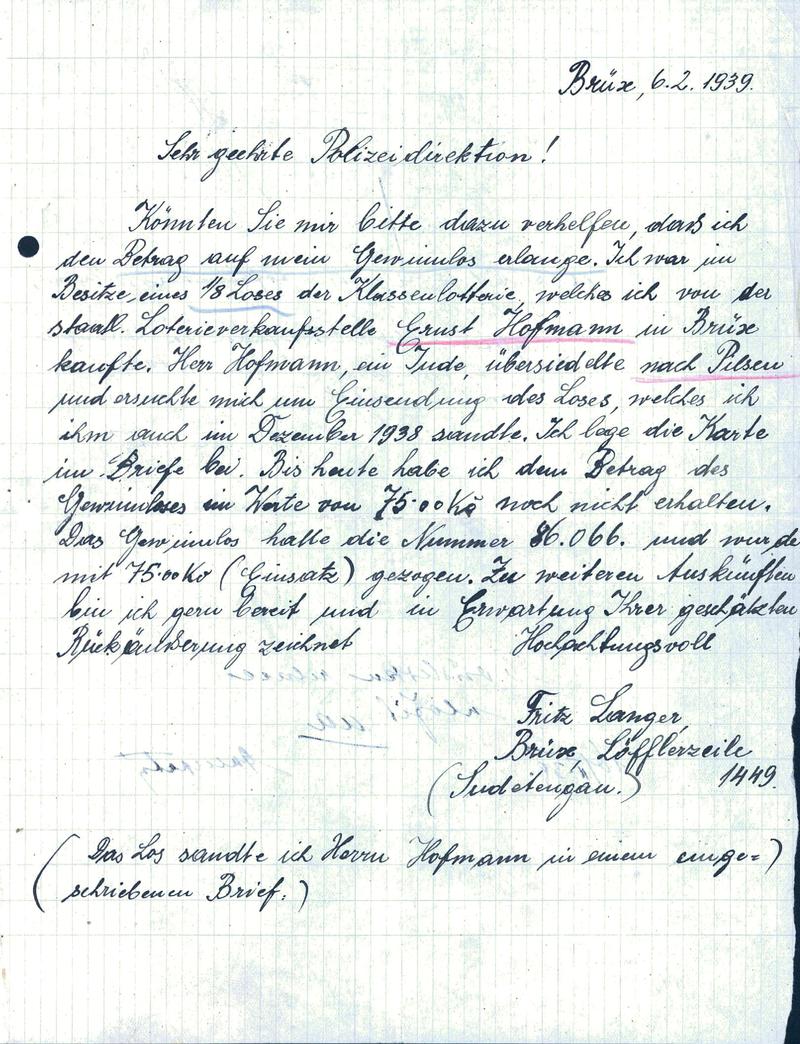 Brüx, 6.2. 1939.
Sehr geehrte Polizeidirektion!
Könnten Sie mir bitte dazu verhelfen, daß ich
den Betrag auf mein Gewinnlos erlange. Ich war im
Besitze eines 1/8 Loses der Klassenlotterie, welches ich von der
staatl. Loterieverkaufsstelle Ernst Hofmann in Brüx
kaufte. Herr Hofmann, ein Jude, übersiedelte nach Pilsen
und ersuchte mich um Einsendung des Loses, welches ich
ihm auch im Dezember 1938 sandte. Ich lege die Karte
im Briefe bei. Bis heute habe ich den Betrag des
Gewinnloses im Werte von 75·00 Kč noch nicht erhalten.
Das Gewinnlos hatte die Nummer 86.066. und wurde
mit 75·00 Kč (Einsatz) gezogen. Zu weiteren Auskünften
bin ich gern bereit und in Erwartung Ihrer geschätzten
Rückäußerung zeichnet Hochachtungsvoll
Fritz Langer,
Brüx, Löfflerzeile
(Sudetengau.) 1449.
(Das Los sandte ich Herrn Hofmann in einem einge=)
(schriebenen Brief.)